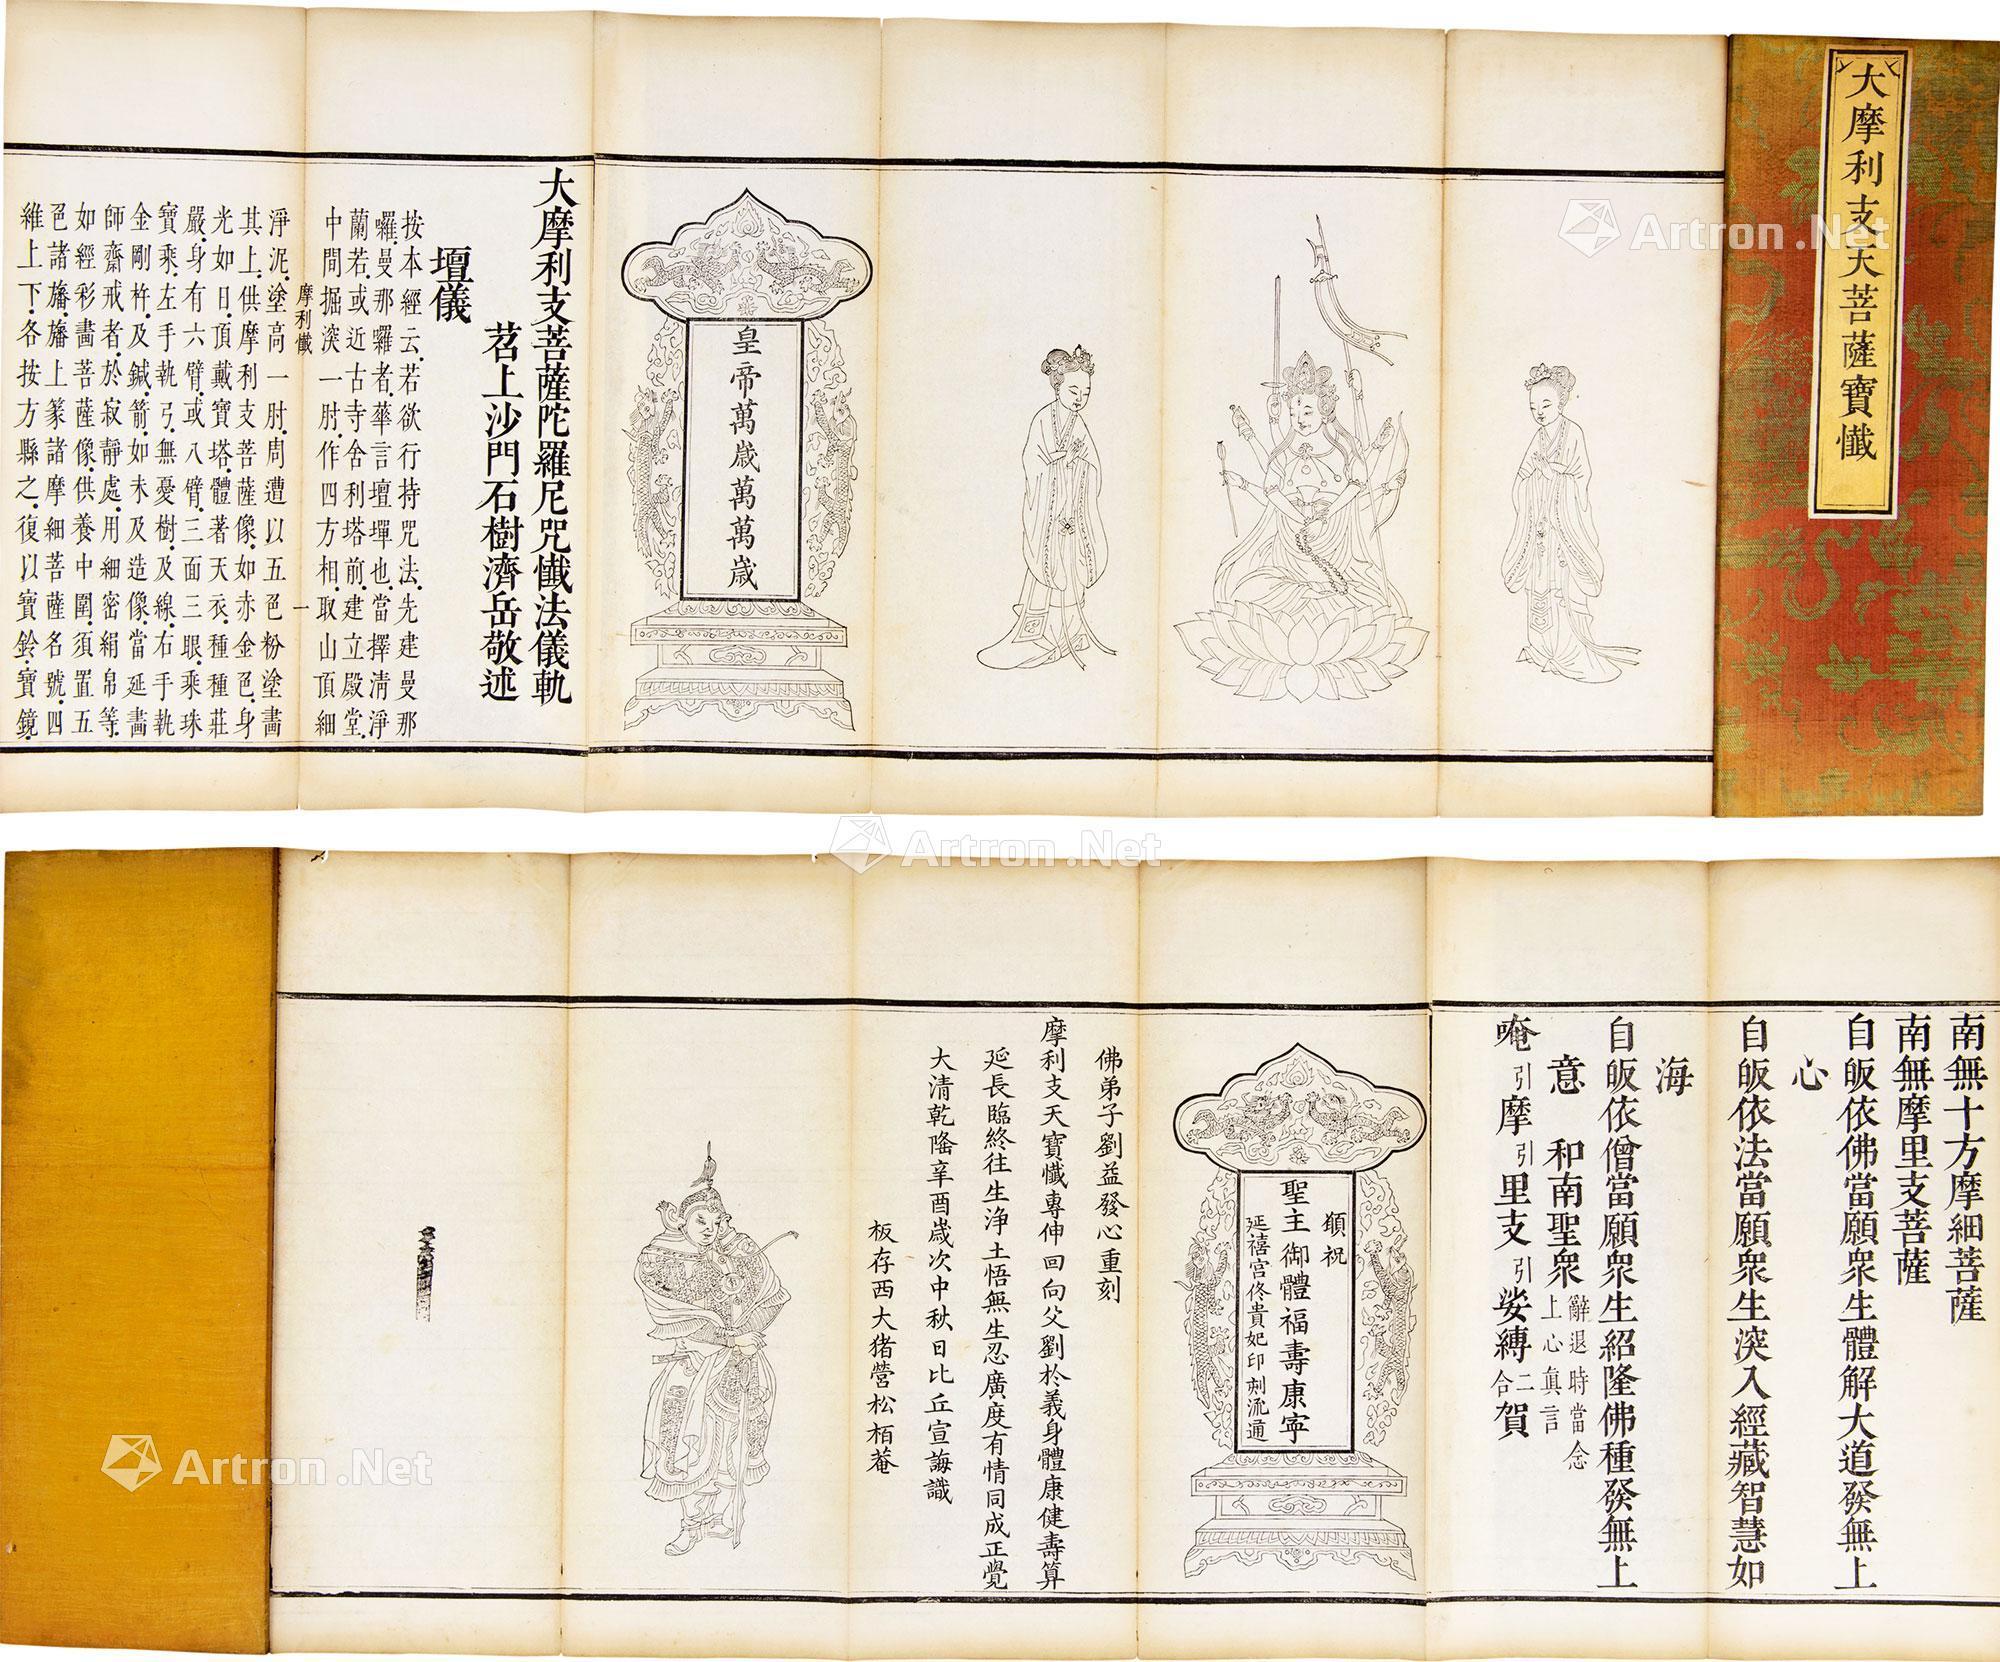 大摩利支天菩薩寶懺
皇帝萬歲萬萬歲
大摩利支菩薩陀羅尼咒懺法儀軌
茗上沙門石樹濟岳敬述
壇儀
按本經云.若欲行持咒法.先建曼那
囉.曼那囉者.華言壇墠也.當擇清淨
蘭若.或近古寺舍利塔前.建立殿堂.
中間掘深一肘.作四方相.取山頂細
摩利懺 一
淨泥.塗高一肘.周遭以五色粉塗畫
其上.供摩利支菩薩像.如赤金色.身
光如日.頂戴寶塔.體著天衣.種種莊
嚴.身有六臂.或八臂.三面三眼.乘珠
寶乘.左手執弓.無憂樹.及線.右手執
金剛杵.及鍼.箭.如未及造像.當延畵
師齋戒者.於寂靜處.用細密絹帛等.
如經彩畵菩薩像.供養中圍.須置五
色諸旛.旛上篆諸摩細菩薩名號.四
維上下.各按方縣之.復以寶鈴.寶鏡.
南無十方摩細菩薩
南無摩里支菩薩
自皈依佛當願衆生體解大道發無上
心
自皈依法當願衆生深入經藏智慧如
海
自皈依僧當願衆生紹隆佛種發無上
意 和南聖衆 辭退時當念上心真言
唵引摩引里支引娑縛二合賀
願祝
聖主御體福壽康寧
延禧宮佟貴妃印刻流通
佛弟子劉益發心重刻
摩利支天寶懺專伸回向父劉於義身體康健壽算
延長臨終往生淨土悟無生忍廣度有情同成正覺
大清乾隆辛酉歲次中秋日比丘宣誨識
板存西大猪營松栢菴
Artron.Net
Artron.Net
Artron.Net
Artron.Net